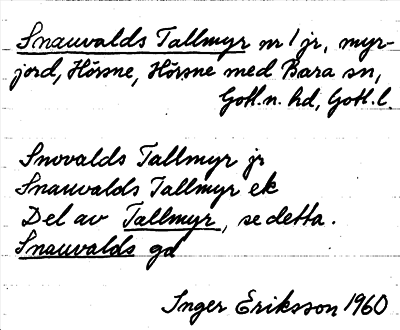 Snauvalds Tallmyr nr 1 jr, myr-
jord, Hörsne, Hörsne med Bara sn,
Gotl. n. hd, Gotl. l.
Snovalds Tallmyr jr
Snauvalds Tallmyr ek
Del av Tallmyr, se detta.
Snauvalds gd
Inger Eriksson 1960